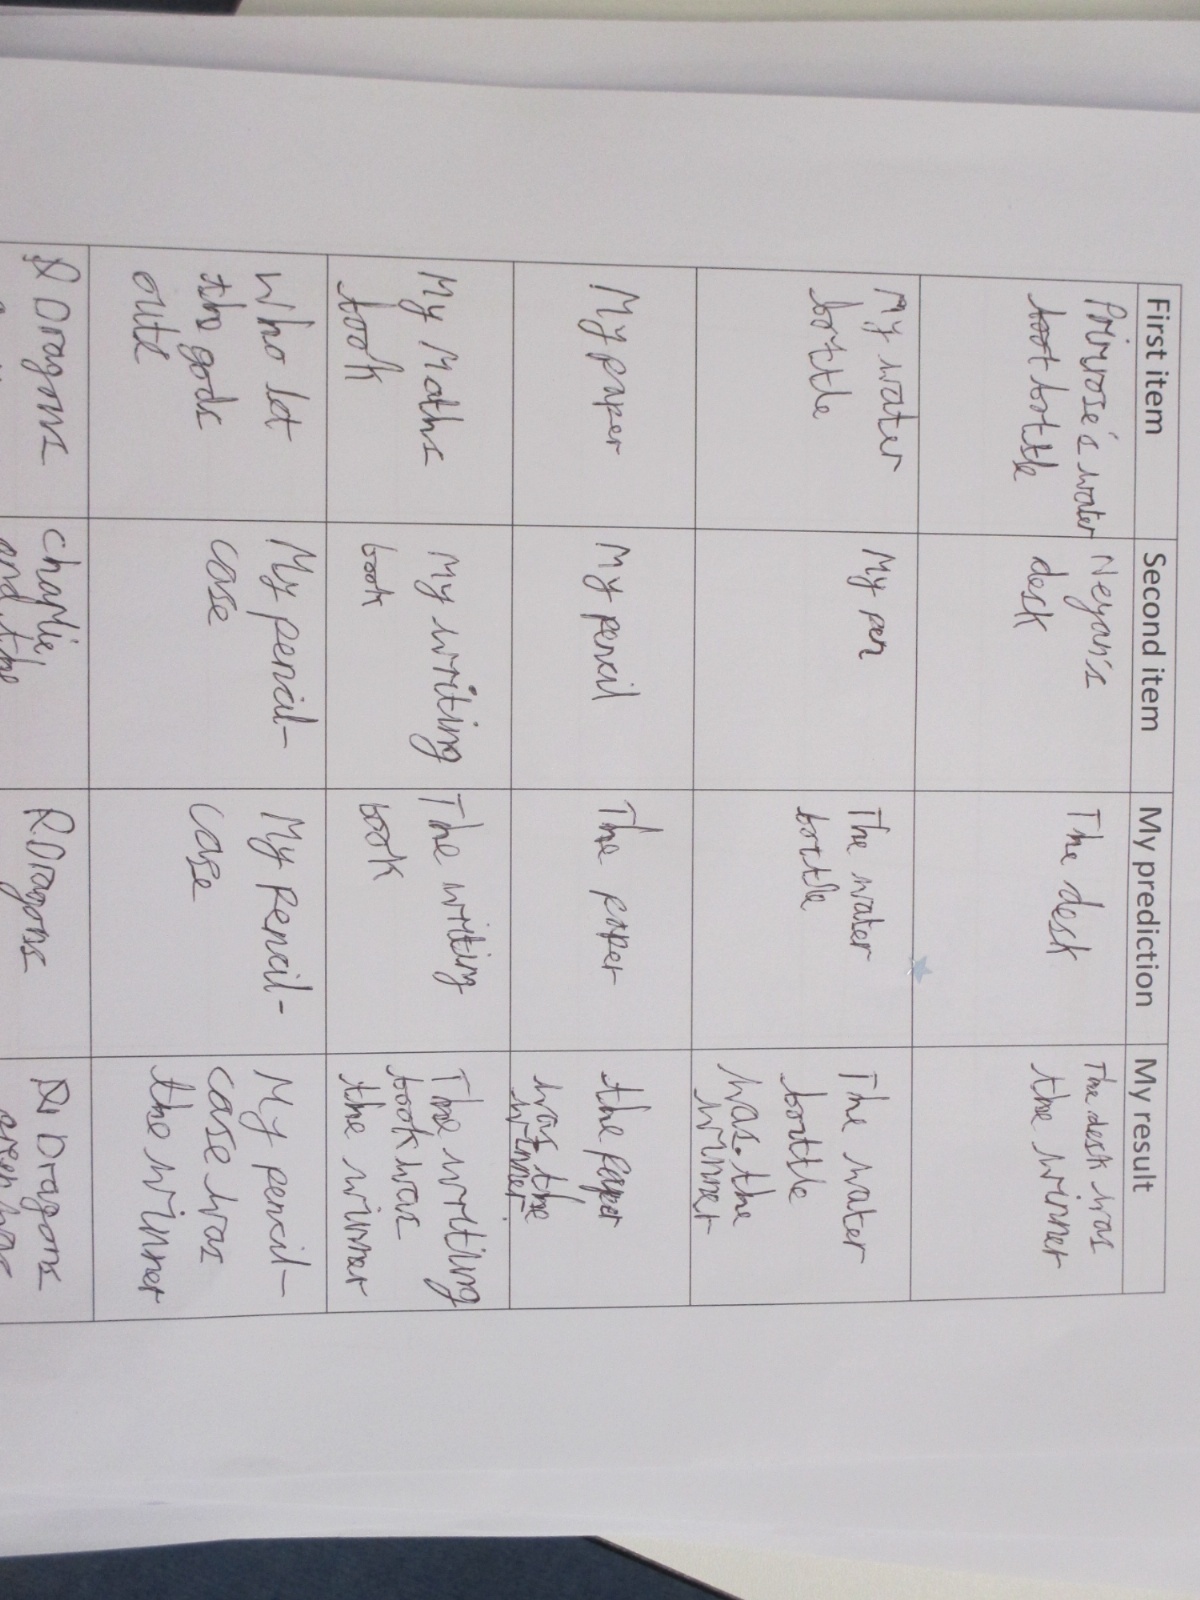 First item Second item My prediction My result
Primrose's water
bottle
Neyan's
desk
The desk
The desk was
the winner
My water
bottle
My pen
The water
bottle
The water
bottle
was the
winner
My paper
My pencil
The paper
the paper
was the
winner
My Maths
book
My writing
book
The writing
book
The writing
book was
the winner
Who let
the gods
out
My pencil-
case
My pencil-
case
My pencil-
case was
the winner
Dragons
Charlie,
and the
Dragons
Dragons